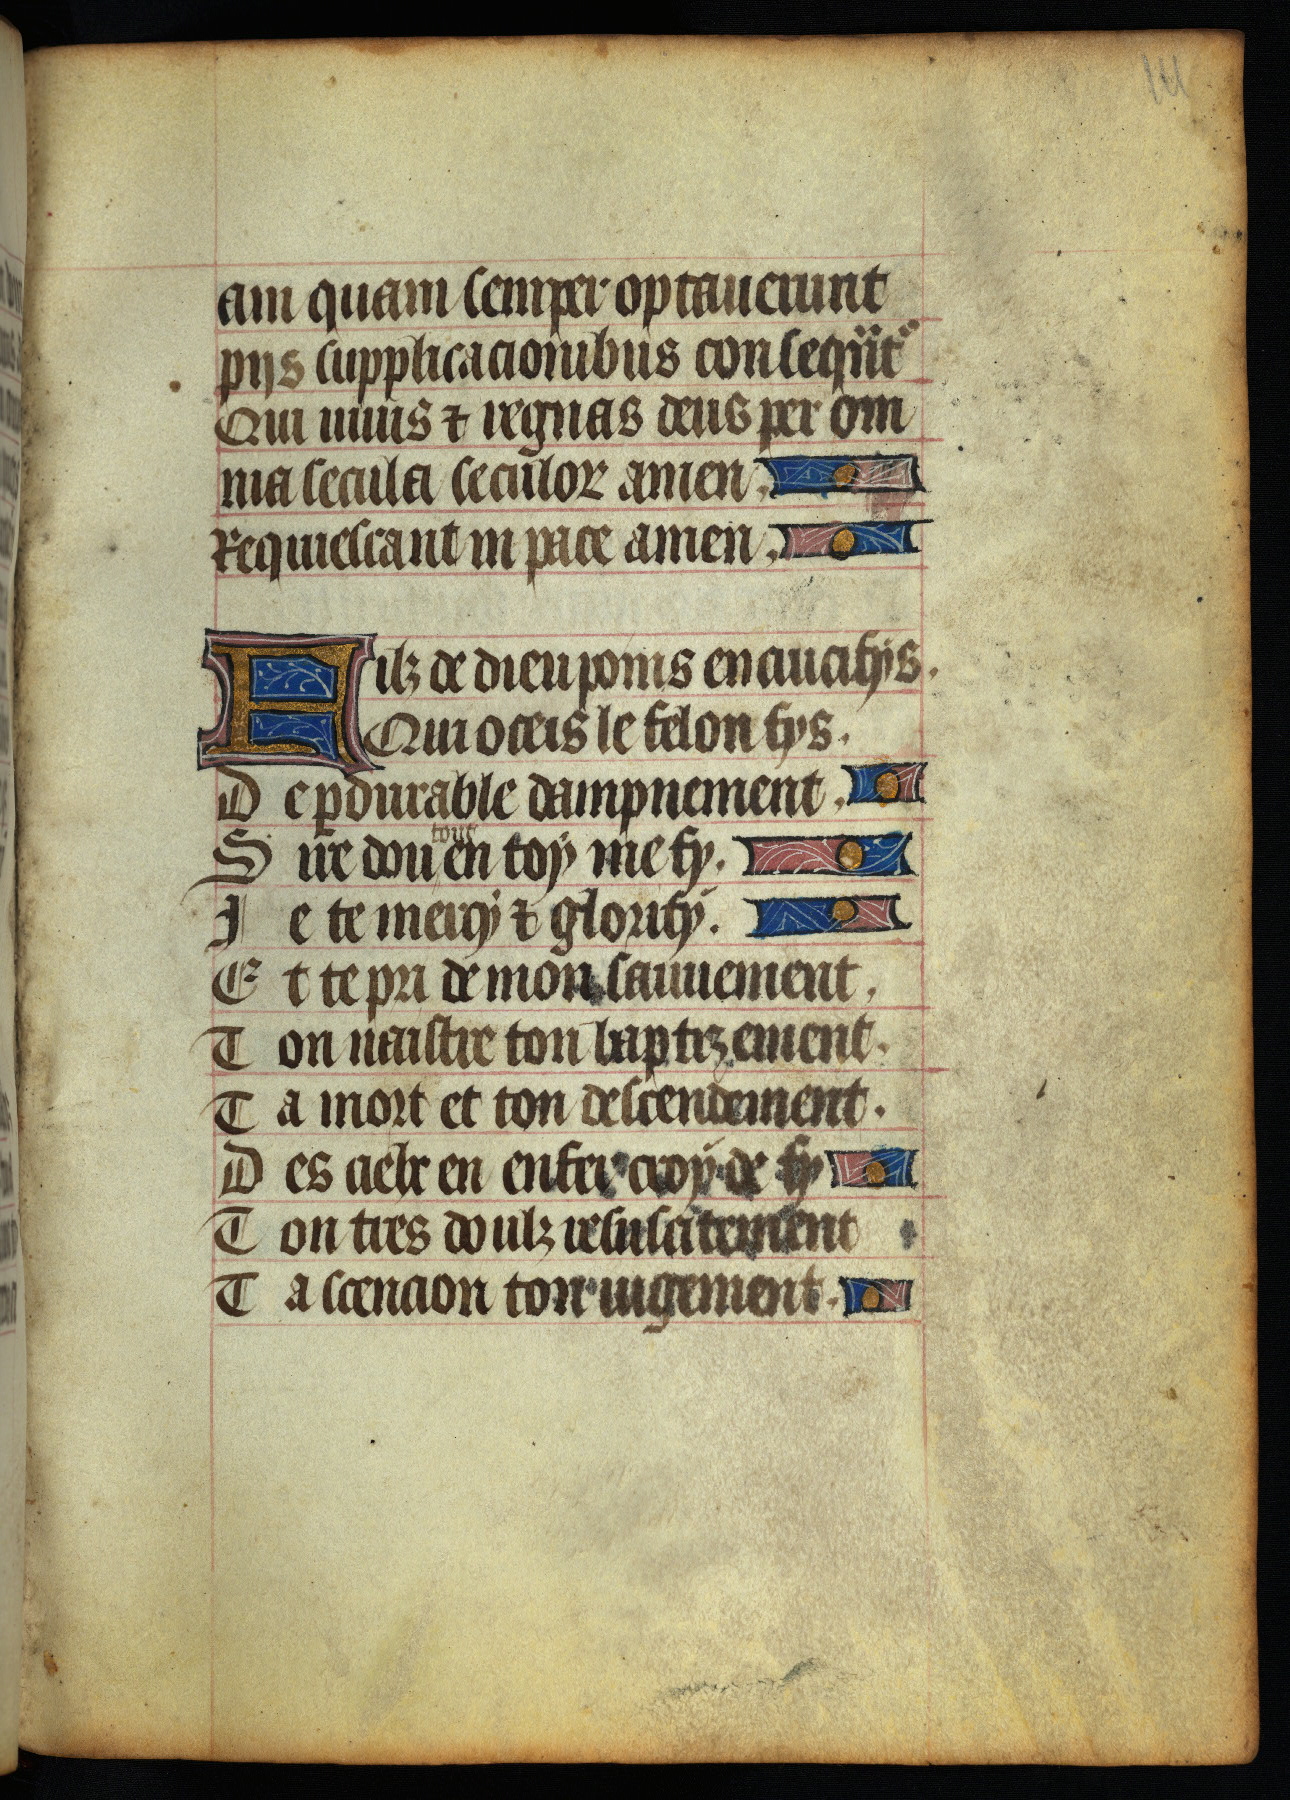 111
am quam semper optauerunt
pijs supplicacionibus consequ̅t᷑
Qui uiuis ⁊ regnas deus per om
nia secula seculoꝝ amen.
Requiescant in pace amen.
Filz de dieu ponis en crucifÿs.
Qui oceis le felon fys.
De ꝑdurable dampnement.
Sire dou tout en toÿ me fy.
Ie te mercÿ ⁊ glorifÿ.
Et te pri de mon sauuement.
Ton naistre ton baptizement.
Ta mort et ton descendement.
Des cielx en enfer croÿ de fy
Ton tres doulz resuscitement
Ta scencion ton iugement.